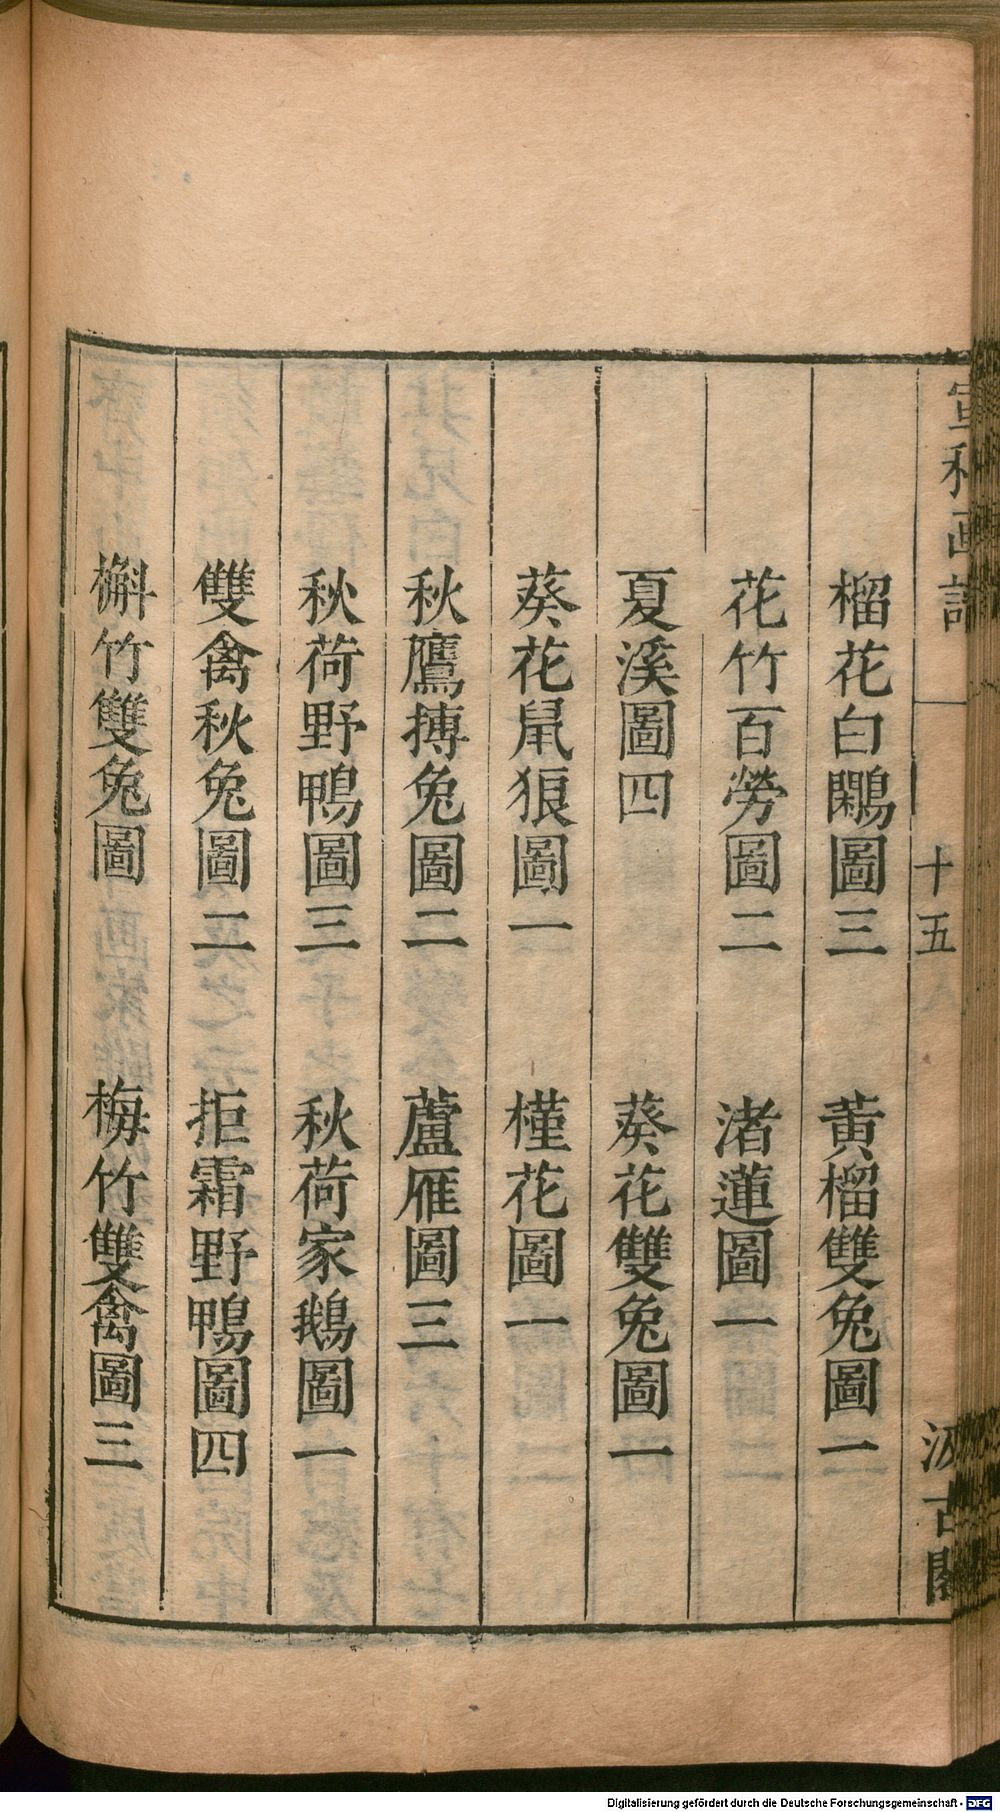 宣和画譜 十五 汲古閣
榴花白鷴圖三 黃榴雙兔圖二
花竹百勞圖二 渚蓮圖一
夏溪圖四 葵花雙兔圖一
葵花鼠狼圖一 槿花圖一
秋鷹搏兔圖二 蘆雁圖三
秋荷野鴨圖三 秋荷家鵝圖一
雙禽秋兔圖二 拒霜野鴨圖四
槲竹雙兔圖 梅竹雙禽圖三
Digitalisierung gefördert durch die Deutsche Forschungsgemeinschaft - DFG